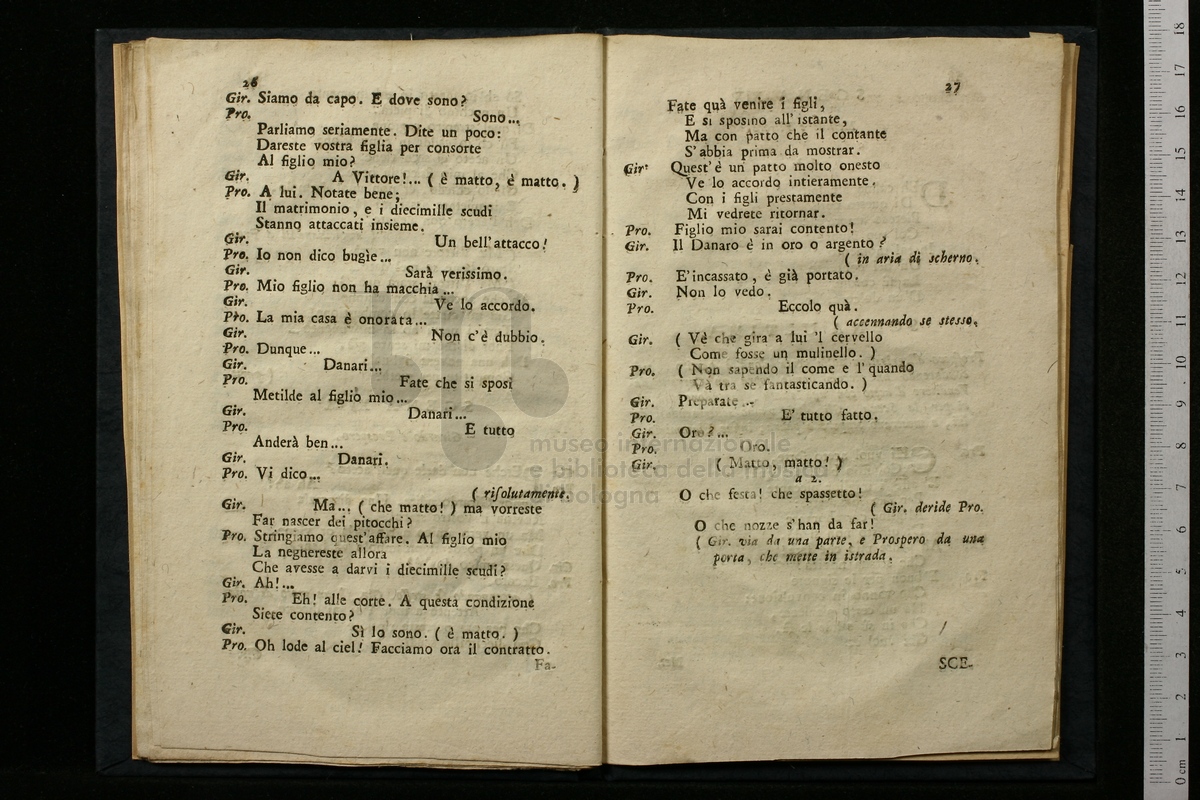 26
Gir. Siamo da capo. E dove sono?
Pro. Sono...
Parliamo seriamente. Dite un poco:
Dareste vostra figlia per consorte
Al figlio mio?
Gir. A Vittore!... ( è matto, è matto. )
Pro. A lui. Notate bene;
Il matrimonio, e i diecimille scudi
Stanno attaccati insieme.
Gir. Un bell'attacco!
Pro. Io non dico bugìe...
Gir. Sarà verissimo.
Pro. Mio figlio non ha macchia...
Gir. Ve lo accordo.
Pro. La mia casa è onorata...
Gir. Non c'è dubbio.
Pro. Dunque...
Gir. Danari...
Pro. Fate che si sposi
Metilde al figlio mio...
Gir. Danari...
Pro. E tutto
Anderà ben...
Gir. Danari.
Pro. Vi dico...
( risolutamente.
Gir. Ma... ( che matto! ) ma vorreste
Far nascer dei pitocchi?
Pro. Stringiamo quest'affare. Al figlio mio
La neghereste allora
Che avesse a darvi i diecimille scudi?
Gir. Ah!...
Pro. Eh! alle corte. A questa condizione
Siete contento?
Gir. Sì lo sono. ( è matto. )
Pro. Oh lode al ciel! Facciamo ora il contratto.
Fa-
27
Fate quà venire i figli,
E si sposino all'istante,
Ma con patto che il contante
S'abbia prima da mostrar.
Gir. Quest'è un patto molto onesto
Ve lo accordo intieramente.
Con i figli prestamente
Mi vedrete ritornar.
Pro. Figlio mio sarai contento!
Gir. Il Danaro è in oro o argento?
( in aria di scherno.
Pro. E' incassato, è già portato.
Gir. Non lo vedo.
Pro. Eccolo quà.
( accennando se stesso.
Gir. ( Vè che gira a lui 'l cervello
Come fosse un mulinello. )
Pro. ( Non sapendo il come e l'quando
Và tra se fantasticando. )
Gir. Preparate...
Pro. E' tutto fatto.
Gir. Oro?...
Pro. Oro.
Gir. ( Matto, matto! )
a 2.
O che festa! che spassetto!
( Gir. deride Pro.
O che nozze s'han da far!
( Gir. via da una parte, e Prospero da una
porta, che mette in istrada.
SCE-
museo internazionale
e biblioteca della musica
di bologna
0 cm 1 2 3 4 5 6 7 8 9 10 11 12 13 14 15 16 17 18